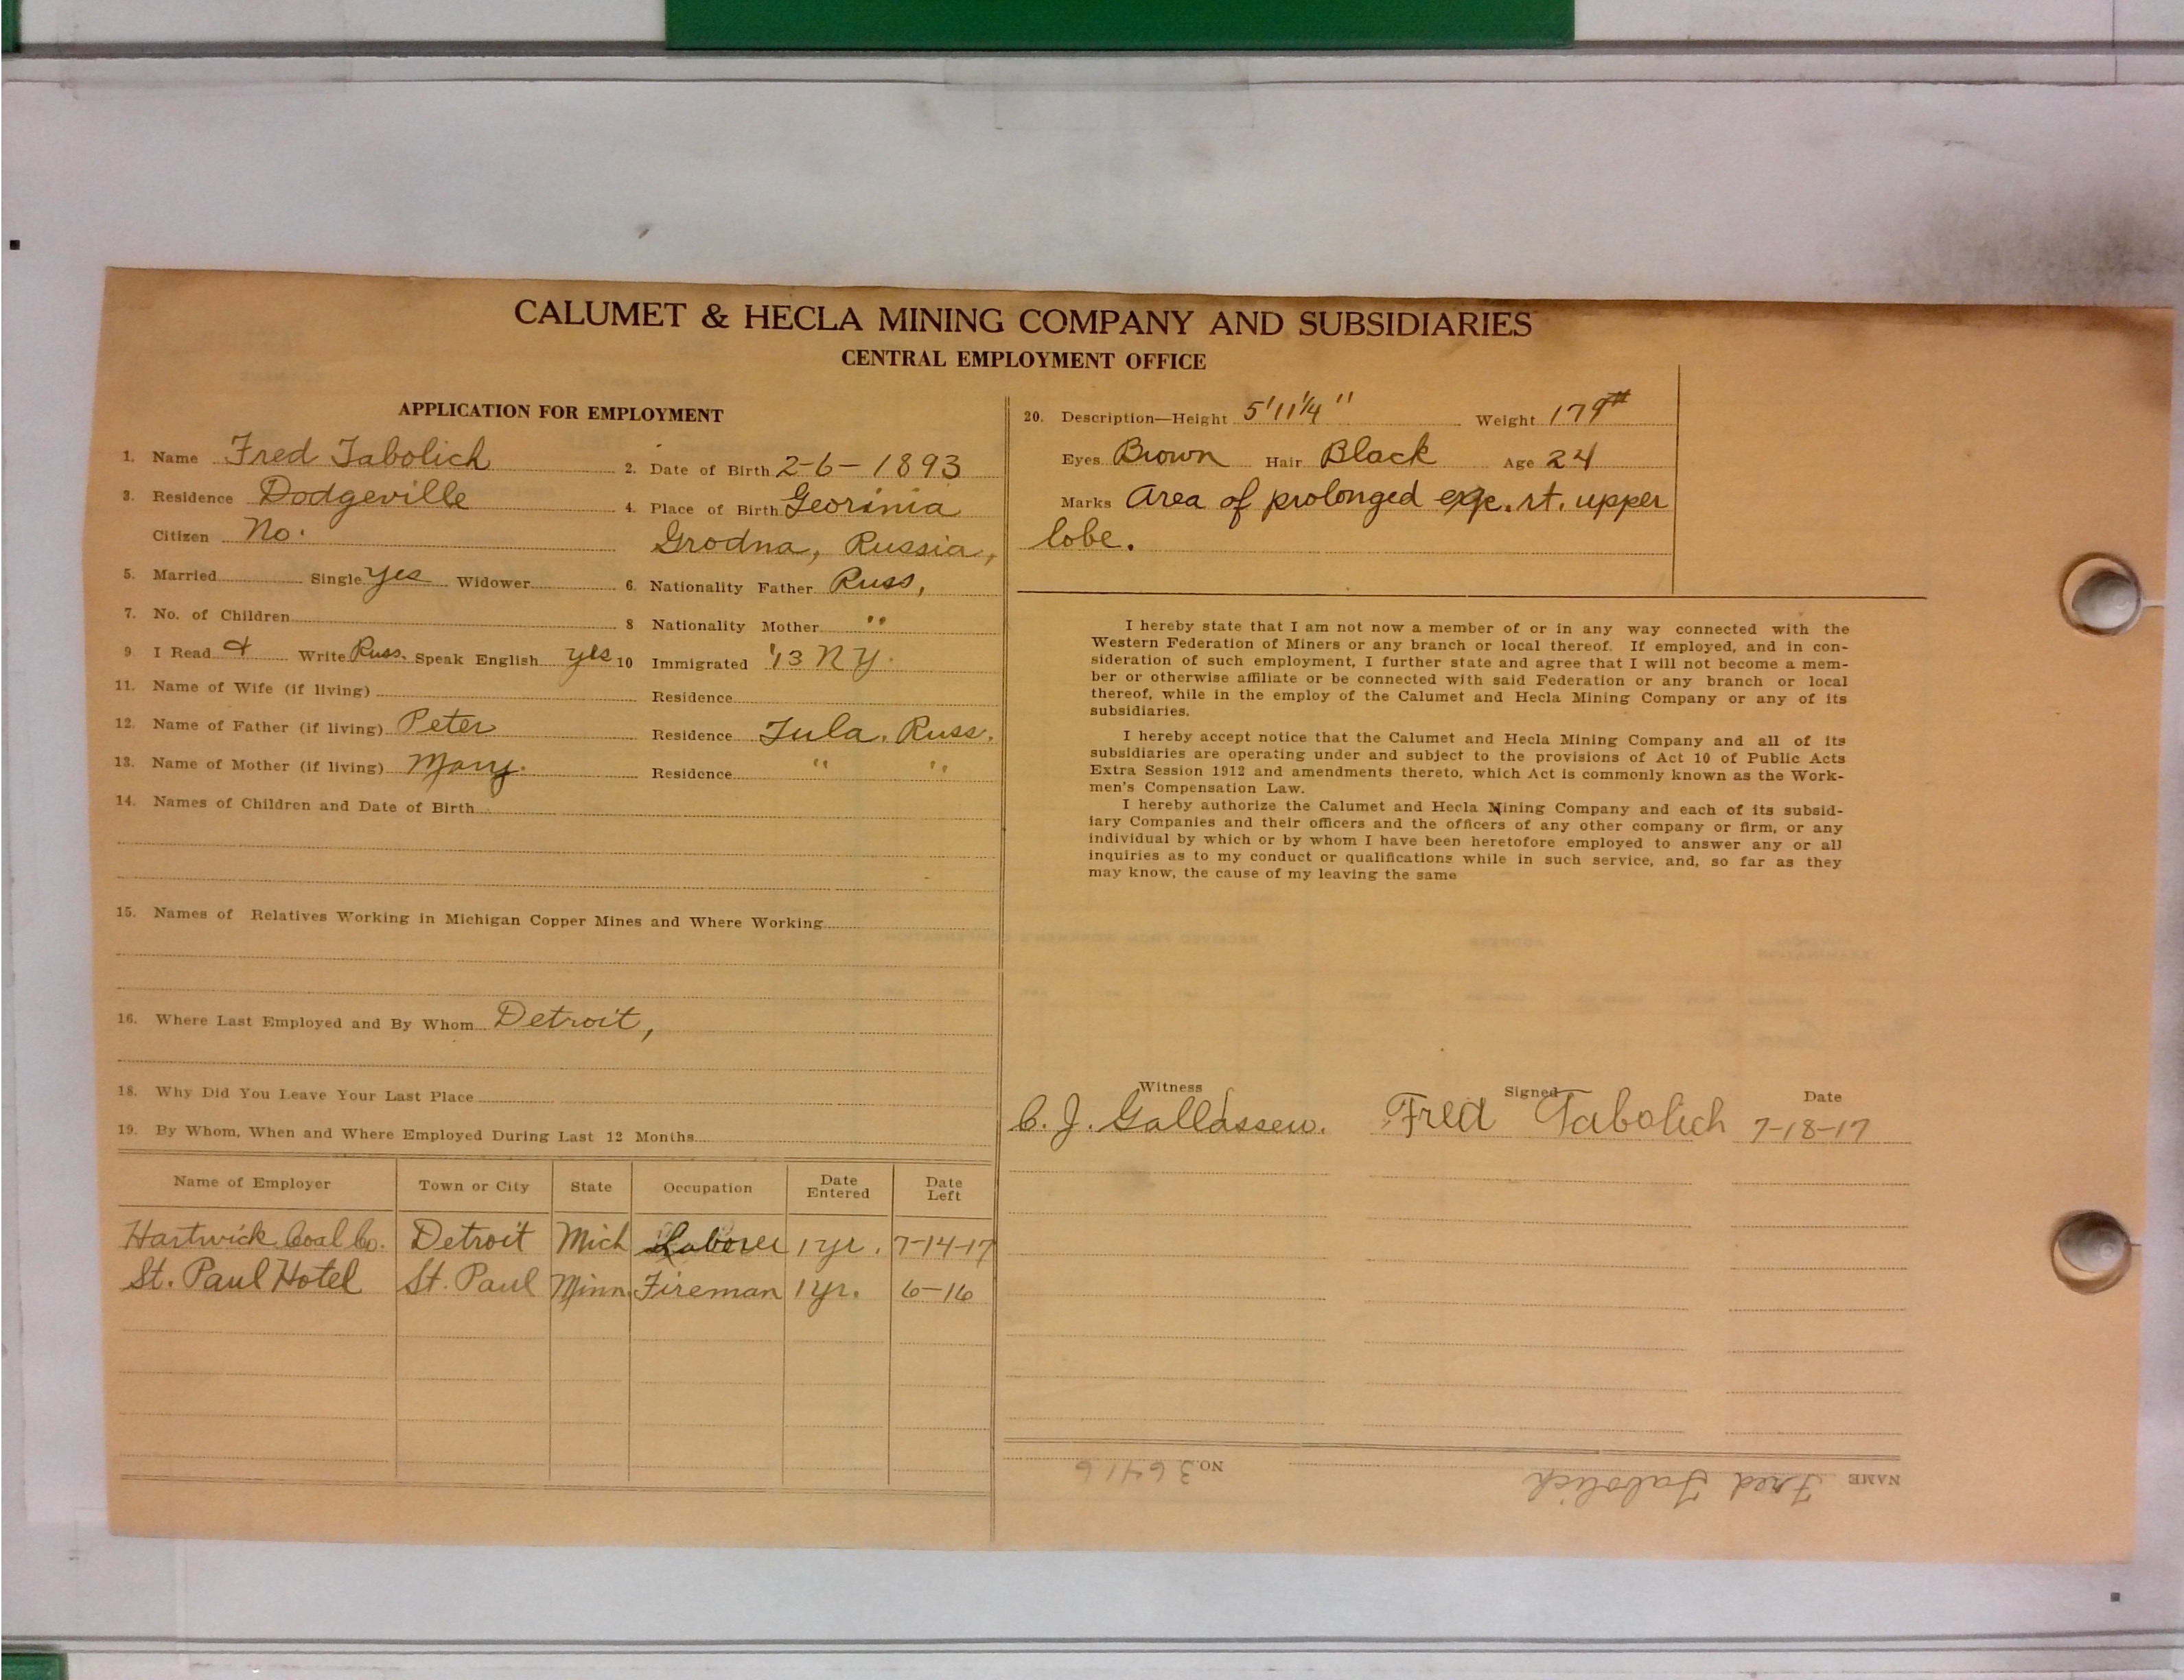 CALUMET & HECLA MINING COMPANY AND SUBSIDIARIES
CENTRAL EMPLOYMENT OFFICE
APPLICATION FOR EMPLOYMENT
1. Name Fred Tabolich 2. Date of Birth 2-6-1893
3. Residence Dodgeville 4. Place of Birth
Citizen No. Grodna, Russia,
5. Married Single yes Widower 6. Nationality Father Russ,
7. No. of Children 8 Nationality Mother "
9 I Read & Write Russ. Speak English yes 10 Immigrated '13 N Y.
11. Name of Wife (if living) Residence
12. Name of Father (if living) Peter Residence Tula, Russ.
13. Name of Mother (if living) Mary. Residence " "
14. Names of Children and Date of Birth
15. Names of Relatives Working in Michigan Copper Mines and Where Working
16. Where Last Employed and By Whom Detroit,
18. Why Did You Leave Your Last Place
19. By Whom, When and Where Employed During Last 12 Months
Name of Employer Town or City State Occupation Date Entered Date Left
Hartwick Coal Co. Detroit Mich Laborer 1 yr. 7-14-17
St. Paul Hotel St. Paul Minn. Fireman 1 yr. 6-16
20. Description—Height 5'11 1/4" Weight 179#
Eyes Brown Hair Black Age 24
Marks Area of prolonged exp. rt. upper
lobe.
I hereby state that I am not now a member of or in any way connected with the
Western Federation of Miners or any branch or local thereof. If employed, and in con-
sideration of such employment, I further state and agree that I will not become a mem-
ber or otherwise affiliate or be connected with said Federation or any branch or local
thereof, while in the employ of the Calumet and Hecla Mining Company or any of its
subsidiaries.
I hereby accept notice that the Calumet and Hecla Mining Company and all of its
subsidiaries are operating under and subject to the provisions of Act 10 of Public Acts
Extra Session 1912 and amendments thereto, which Act is commonly known as the Work-
men's Compensation Law.
I hereby authorize the Calumet and Hecla Mining Company and each of its subsid-
iary Companies and their officers and the officers of any other company or firm, or any
individual by which or by whom I have been heretofore employed to answer any or all
inquiries as to my conduct or qualifications while in such service, and, so far as they
may know, the cause of my leaving the same
Witness Signed Date
C. J. Fred Tabolich 7-18-17
NAME Fred Tabolich NO. 36416